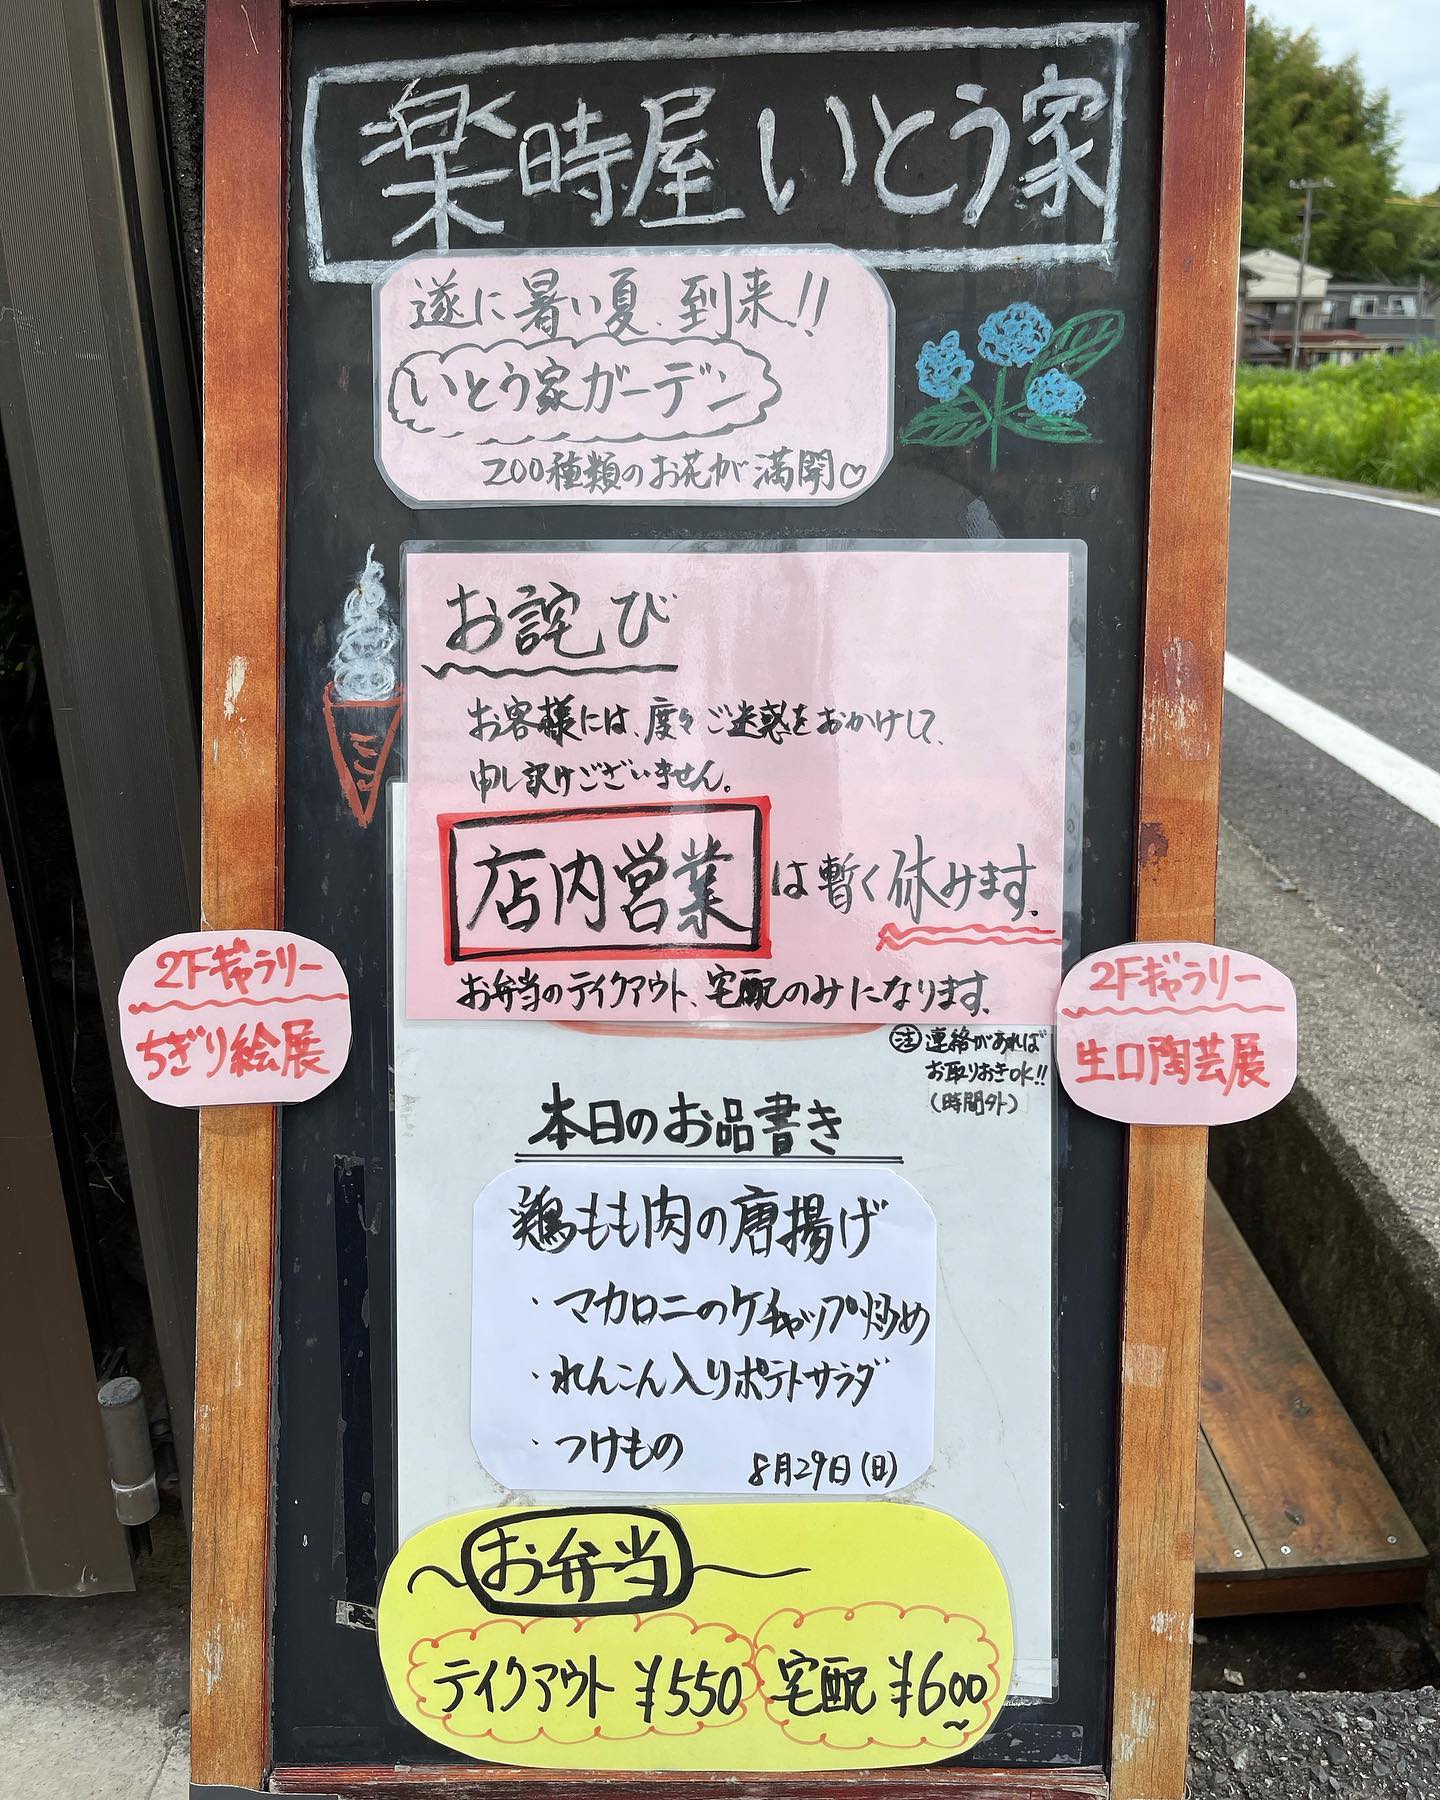 楽時屋 いとう家
遂に暑い夏、到来!!
いとう家ガーデン
200種類のお花が満開♡
お詫び
お客様には、度々ご迷惑をおかけして、
申し訳けございません。
店内営業は暫く休みます。
お弁当のテイクアウト、宅配のみになります。
2Fギャラリー
ちぎり絵展
2Fギャラリー
生口陶芸展
㊟連絡があれば
お取りおきOK!!
(時間外)
本日のお品書き
鶏もも肉の唐揚げ
・マカロニのケチャップ炒め
・れんこん入りポテトサラダ
・つけもの
8月29日(日)
お弁当
テイクアウト ¥550
宅配 ¥600~